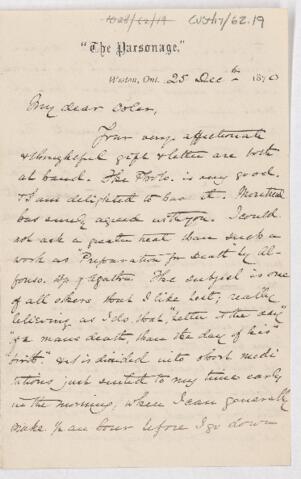 CUS417/62.19
"The Parsonage,"
Weston, Ont. 25 Decbr 1870
My dear Osler,
Your very affectionate
& thoughtful gift & letter are both
at hand. The Photo. is very good.
& I am delighted to have it. Montreal
has surely agreed with you. I could
not ask a greater treat than such a
work as "Preparation for death" by Al-
fonso, Bp of Agatha. The subject is one
of all others that I like best; really
believing as I do that "better is the day"
"of a mans death, than the day of his"
"birth". It is divided into short medi
tations just suited to my time early
in the morning, when I can generally
make up an hour before I go down